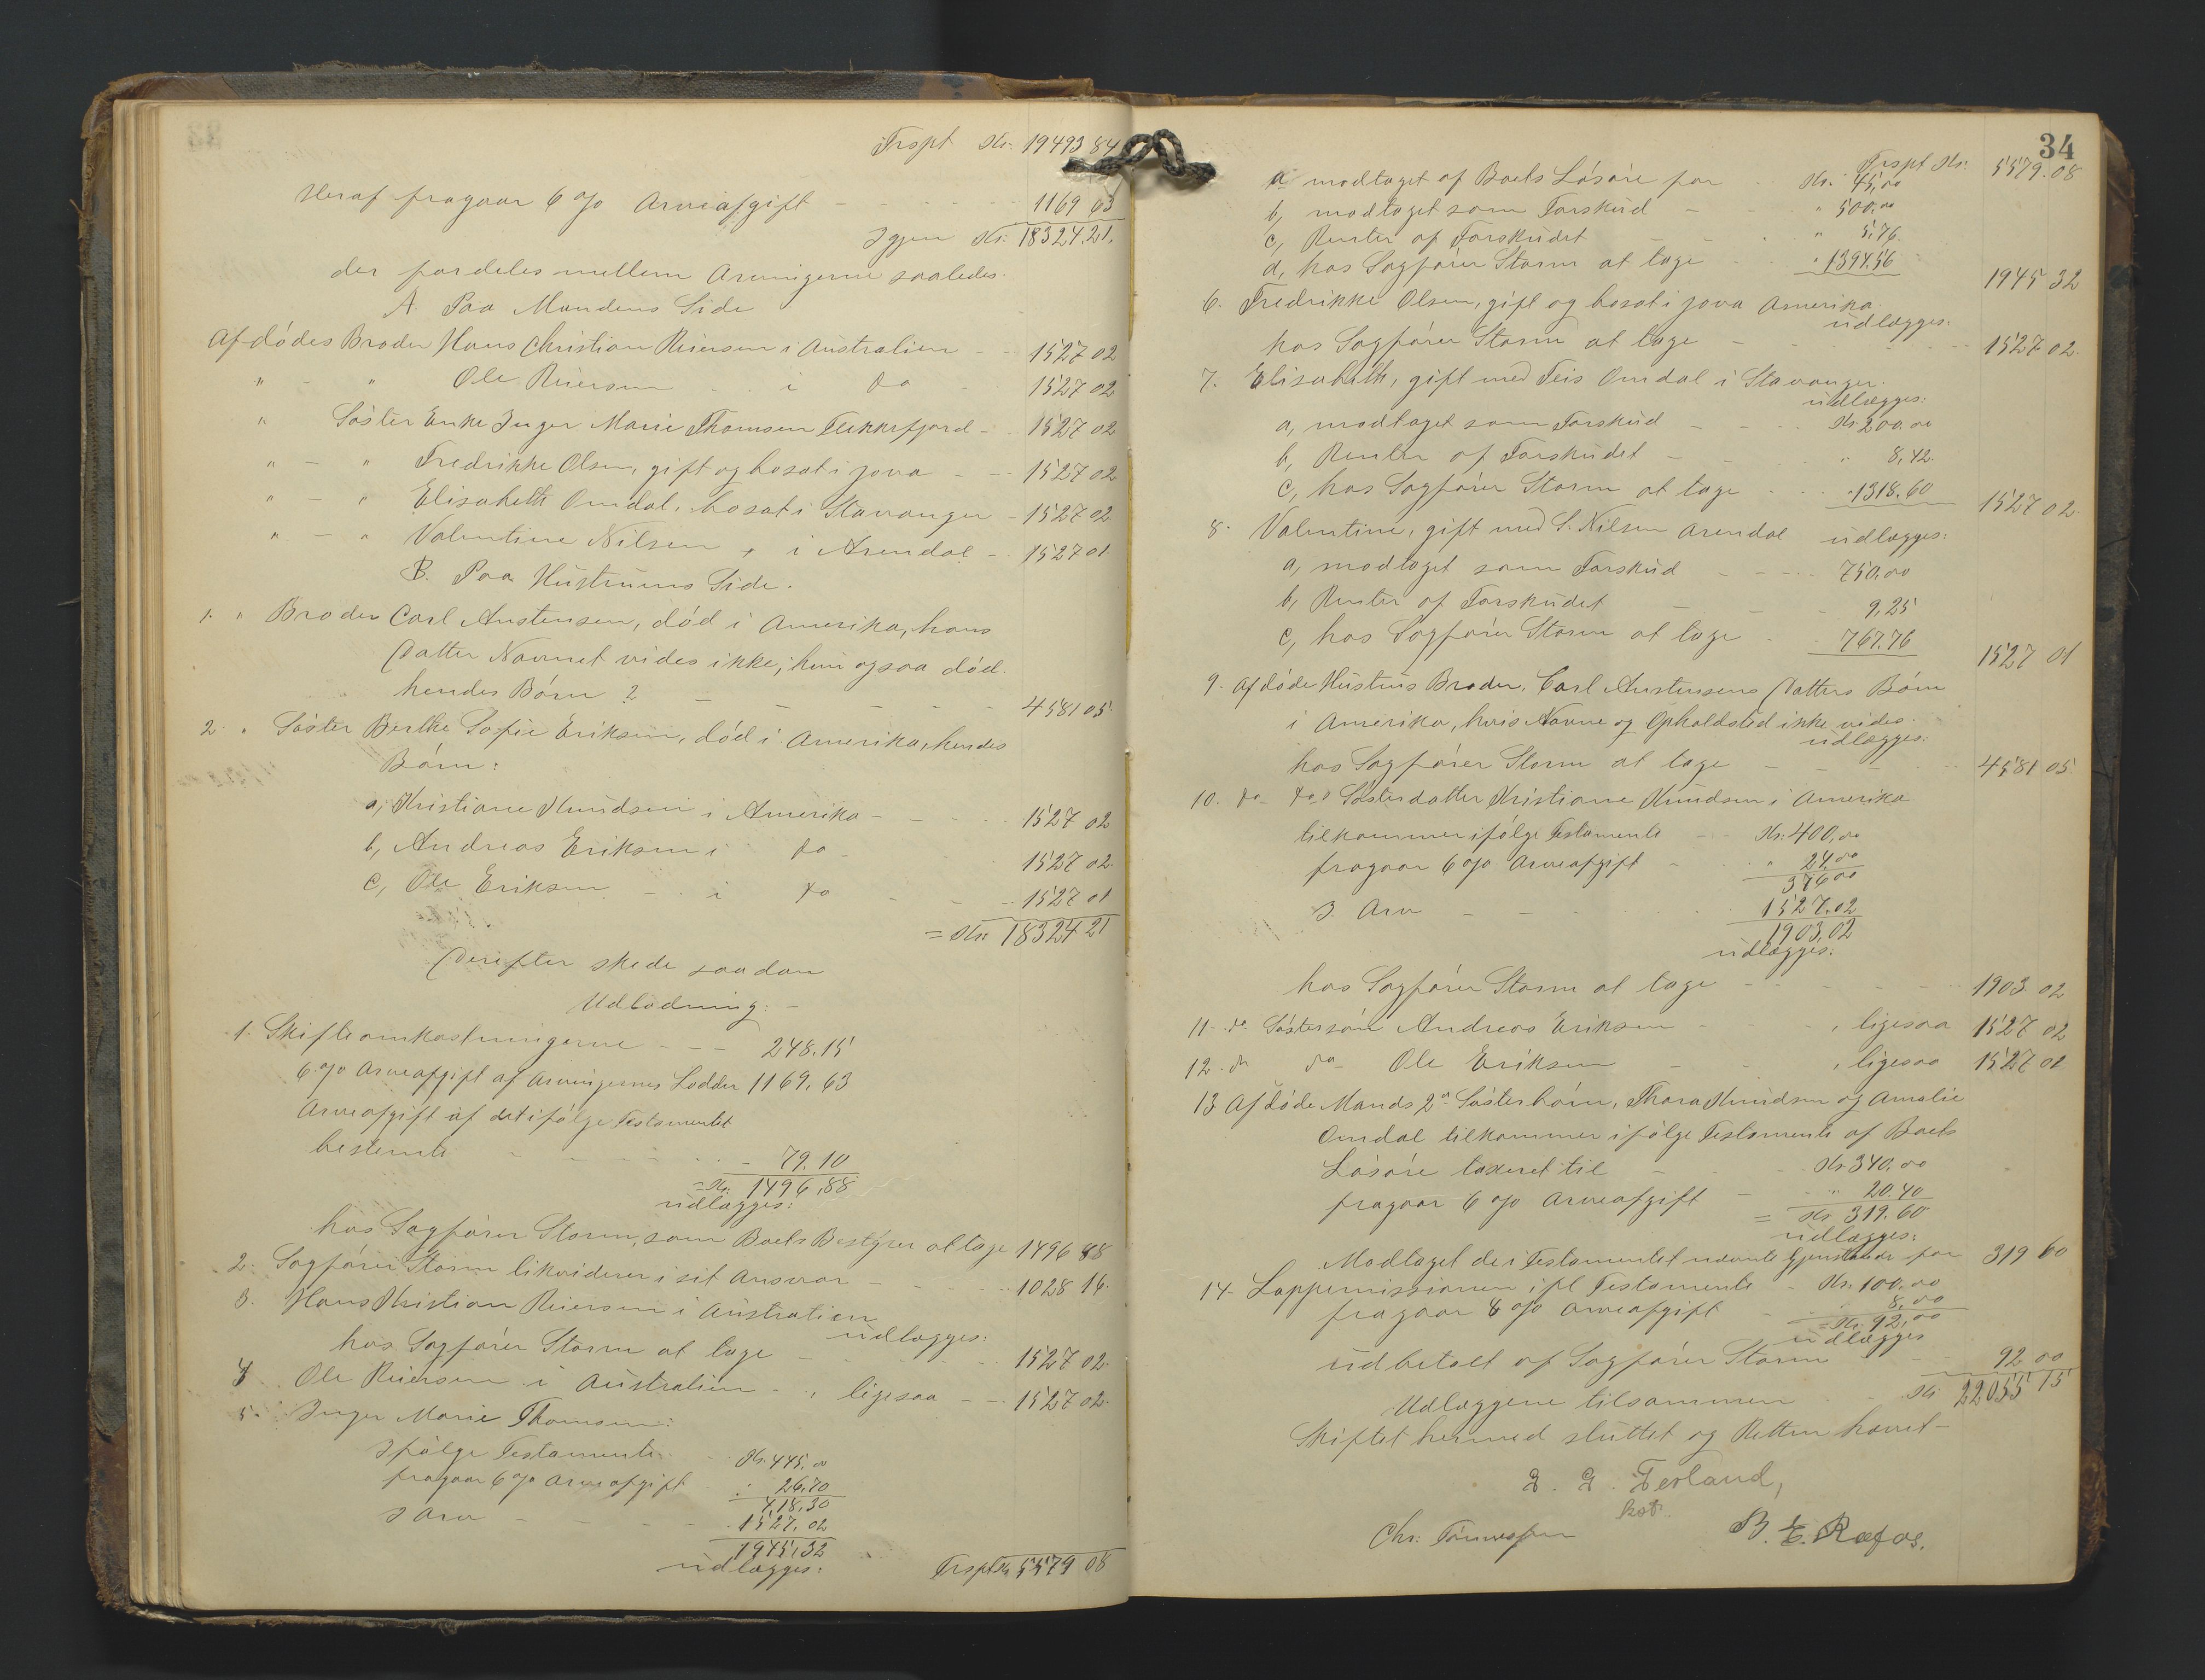 Trspt Kr. 19493 84
Heraf fragaar 6 % Arveafgift - - - - 1169 63
Igjen Kr. 18324.21.
der fordeles mellem Arvingerne saaledes.
A. Paa Mandens Side
Afdödes Broder Hans Christian Reiersen i Australien - - 1527 02
" - " Ole Reiersen - i do - 1527 02
" Söster Enke Inger Marie Thomsen Flekkefjord - - 1527 02
" - " Fredrikke Olsen, gift og bosat i jova - - 1527 02
" - " Elisabeth Omdal, bosat i Stavanger - 1527 02
" - " Valentine Nilsen, i Arendal - 1527 01.
B. Paa Hustruens Side.
1. " Broder Carl Austensen, död i Amerika, hans
Datter Navnet vides ikke, hun ogsaa död.
hendes Börn ? - - - - - 4581 05.
2. " Söster Berthe Sofie Eriksen, död i Amerika, hendes
Börn:
a, Kristiane Knudsen i Amerika - - - 1527 02
b, Andreas Eriksen i do - 1527 02.
c, Ole Eriksen - i do - - 1527 01
= Kr. 18324 21
Derefter skede saadan
Udlodning: -
1. Skifteomkostningerne - - - 248.15
6 % Arveafgift af Arvingernes Lodder 1169,63
Arveafgift af det ifölge Testamentet
bestemte - - - - - 79.10
= Kr. 1496,88
udlægges:
hos Sagförer Storm, som Boets Bestyrer at tage 1496 88
2. Sagförer Storm likviderer i sit Ansvar - - - 1028 16.
3. Hans Kristian Reiersen i Australien
udlægges:
hos Sagförer Storm at tage - - - - 1527 02.
4 Ole Reiersen i Australien - , ligesaa - - 1527 02.
5. Inger Marie Thomsen:
Ifölge Testamente - Kr. 445,00
fragaar 6 % Arveafgift - " 26,70
418,30
I Arv - - - - 1527,02
1945,32
udlægges:
Trspt Kr 5579 08
34
Trspt Kr. 5579.08
a modtaget af Boets Lösöre for - Kr. 45,00
b, modtaget som Forskud - " 500,00
c, Renter af Forskudet - - " 5,76.
d, hos Sagförer Storm at tage - - " 1394.56 1945 32
6. Fredrikke Olsen, gift og bosat i jova Amerika.
udlægges:
hos Sagförer Storm at tage - - - - 1527 02.
7. Elisabeth, gift med Teis Omdal i Stavanger.
udlægges:
a, modtaget som Forskud - - - Kr 200.00
b, Renter af Forskudet - - " 8,42.
c, hos Sagförer Storm at tage - - " 1318.60 1527 02.
8. Valentine, gift med S. Nilsen Arendal udlægges:
a, modtaget som Forskud - - - 750.00
b, Renter af Forskudet - - - 9,25
c, hos Sagförer Storm at tage - - 767.76 1527 01
9. Afdöde Hustrus Broder, Carl Austensens Datters Börn
i Amerika, hvis Navne og Opholdsted ikke vides.
udlægges:
hos Sagförer Storm at tage - - - 4581 05.
10. do do Sösterdatter Kristiane Knudsen i Amerika
tilkommer ifölge Testamente - - Kr. 400,00
fragaar 6 % Arveafgift - - " 24,00
376 00
I Arv - - - - 1527.02
1903,02
udlægges:
hos Sagförer Storm at tage - - - - 1903 02
11. do Söstersön Andreas Eriksen - , ligesaa 1527 02
12. do do Ole Eriksen - - , ligesaa 1527 01
13 Afdöde Mands 2de Sösterbörn, Thora Knudsen og Amalie
Omdal tilkommer ifölge Testamente af Boets
Lösöre taxeret til - - Kr 340.00
fragaar 6 % Arveafgift - - " 20.40
= Kr 319.60
udlægges:
Modtaget de i Testamentet nævnte Gjenstande for 319 60
14 Lappemissionen ifl Testamente - Kr. 100,00
fragaar 8 % Arveafgift - - 8,00
= Kr. 92,00
udlægges
udbetalt af Sagförer Storm - - 92 00
Udlæggene tilsammen - - Kr 22055 15
Skiftet hermed sluttet og Retten hævet -
Chr. B. E. Ræfos.